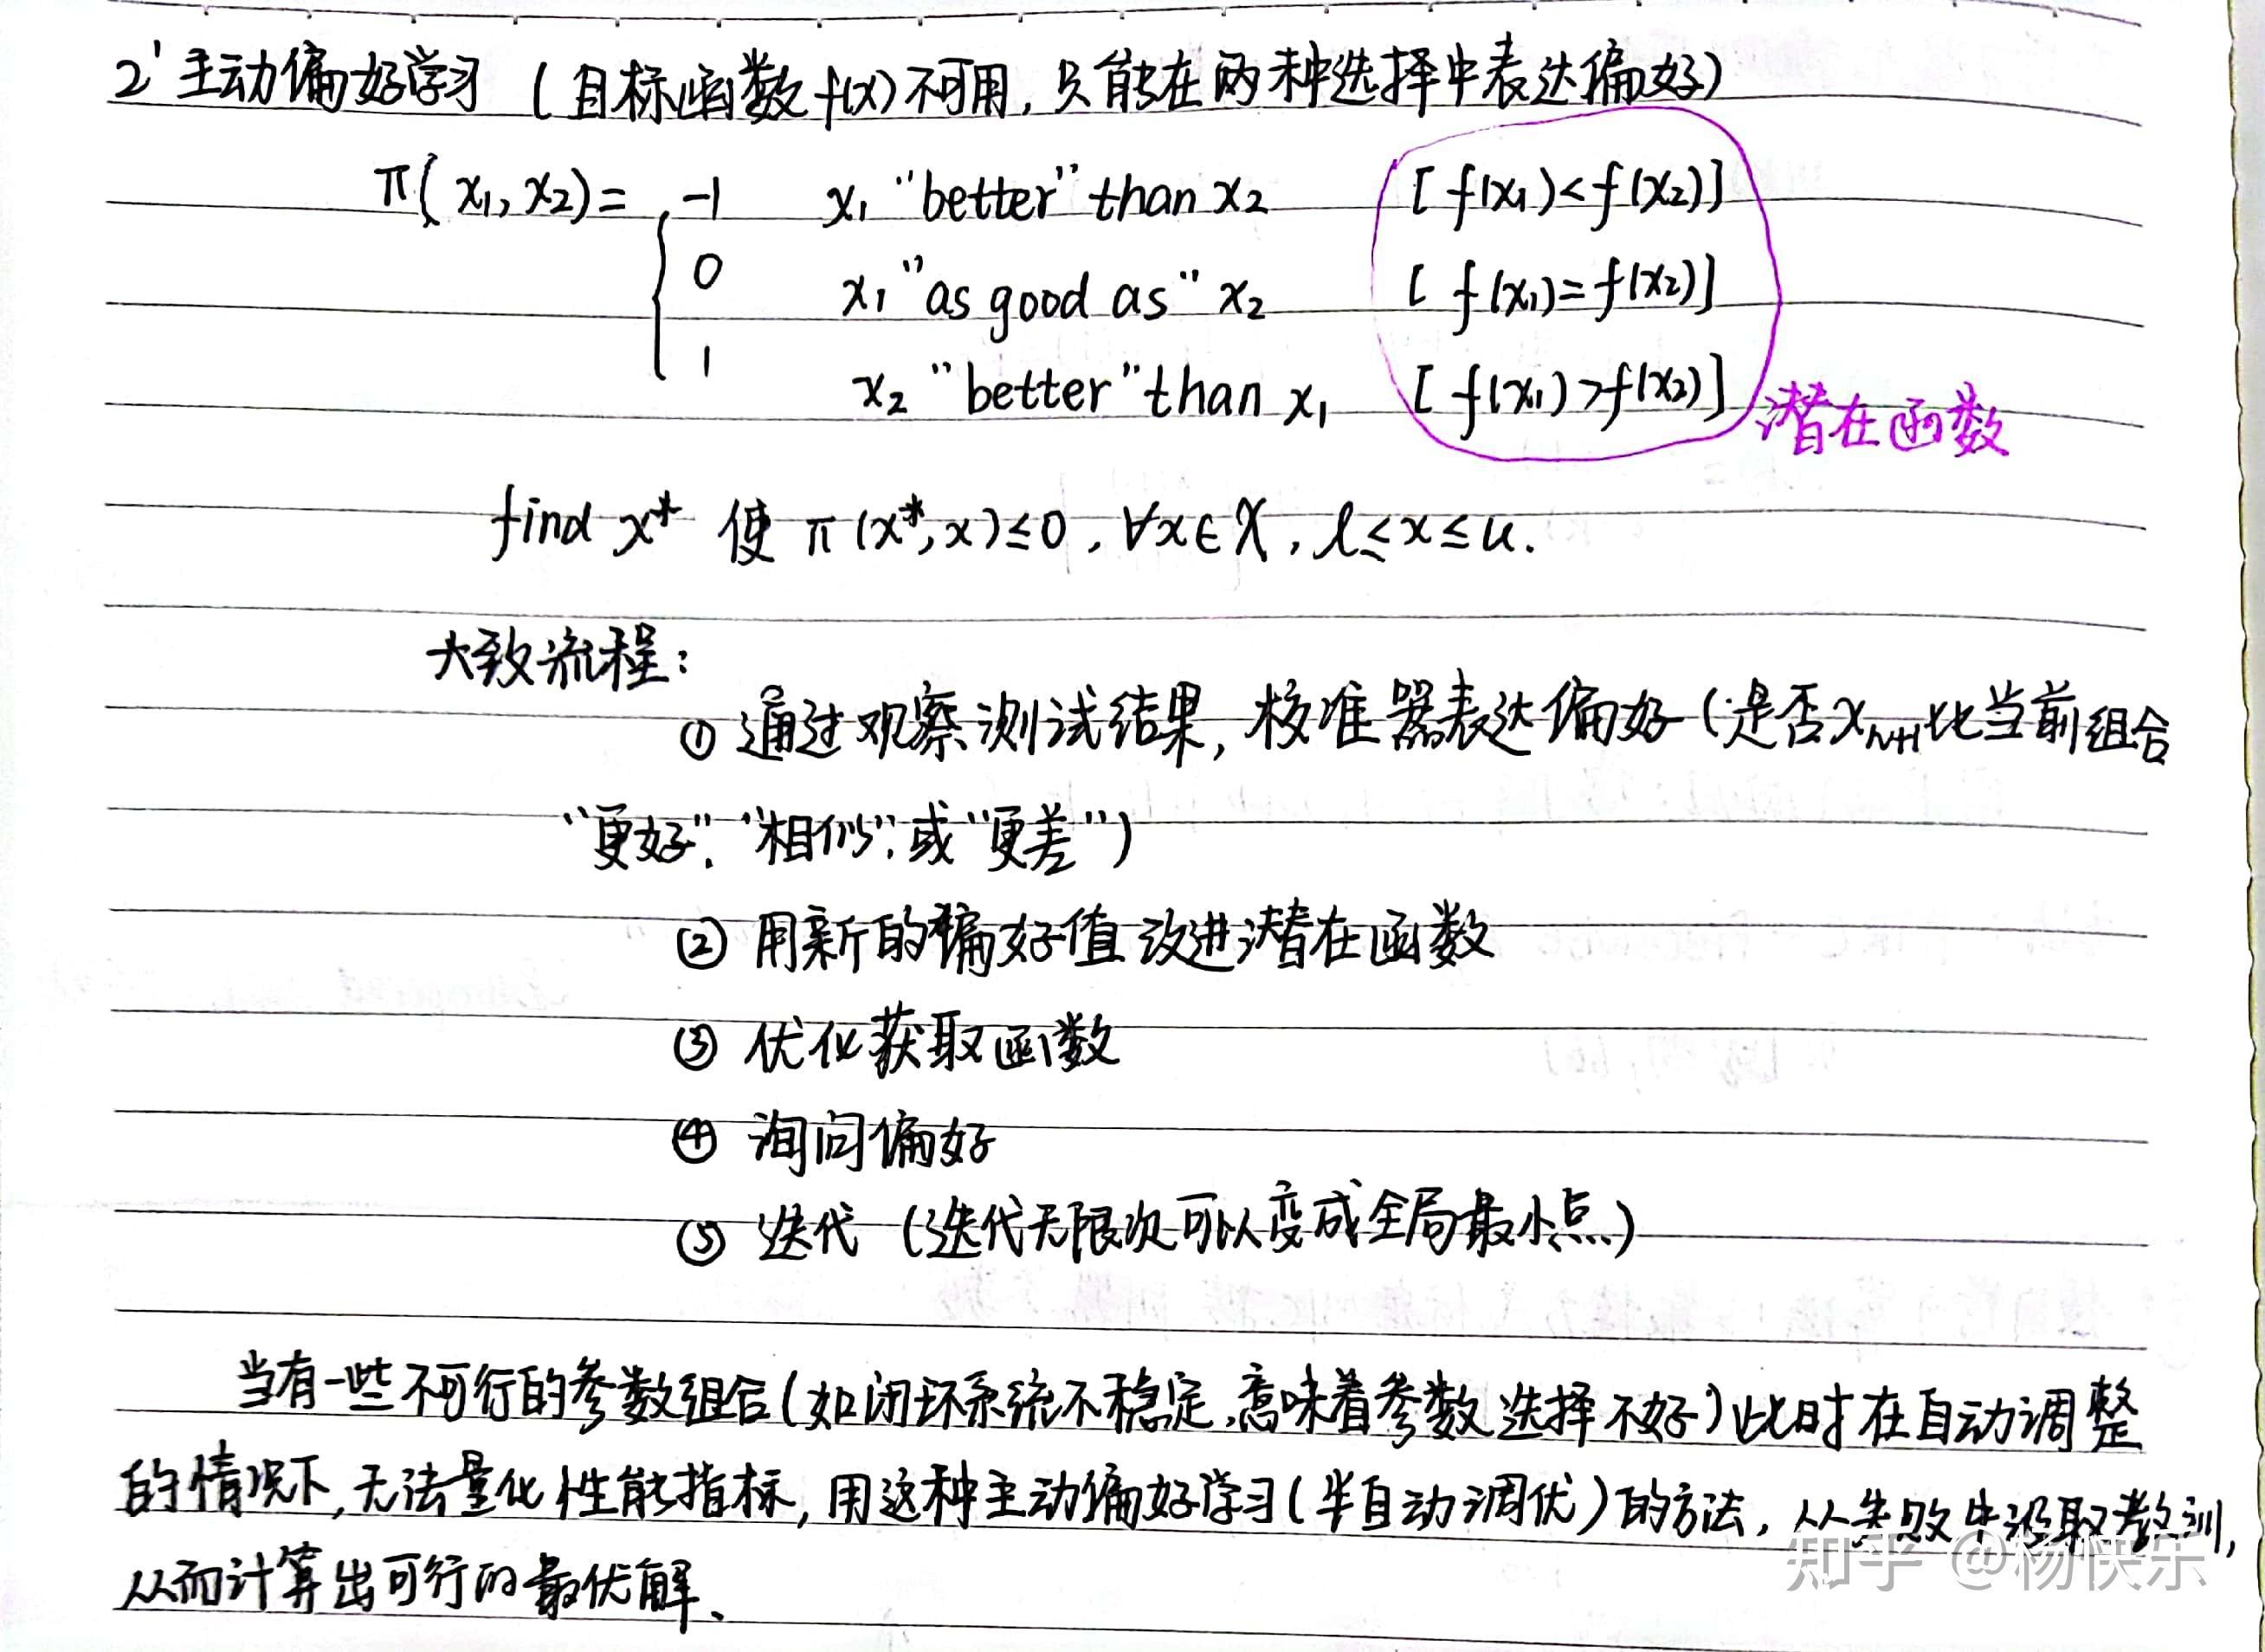 2' 主动偏好学习 (目标函数f(x)不可用,只能在两种选择中表达偏好)
π(x₁,x₂)= { -1 x₁ "better" than x₂ [f(x₁)<f(x₂)]
0 x₁ "as good as" x₂ [f(x₁)=f(x₂)]
1 x₂ "better" than x₁ [f(x₁)>f(x₂)]
潜在函数
find x* 使 π(x*,x)≤0, ∀x∈X, l≤x≤u.
大致流程:
① 通过观察测试结果,校准器表达偏好(是否xₙ₊₁比当前组合
"更好"、"相似"、或"更差")
② 用新的偏好值改进潜在函数
③ 优化获取函数
④ 询问偏好
⑤ 迭代 (迭代无限次可以变成全局最小点)
当有一些不可行的参数组合(如闭环系统不稳定,意味着参数选择不好)此时在自动调整
的情况下,无法量化性能指标,用这种主动偏好学习(半自动调优)的方法,从失败中汲取教训,
从而计算出可行的最优解、
知乎 @杨快乐